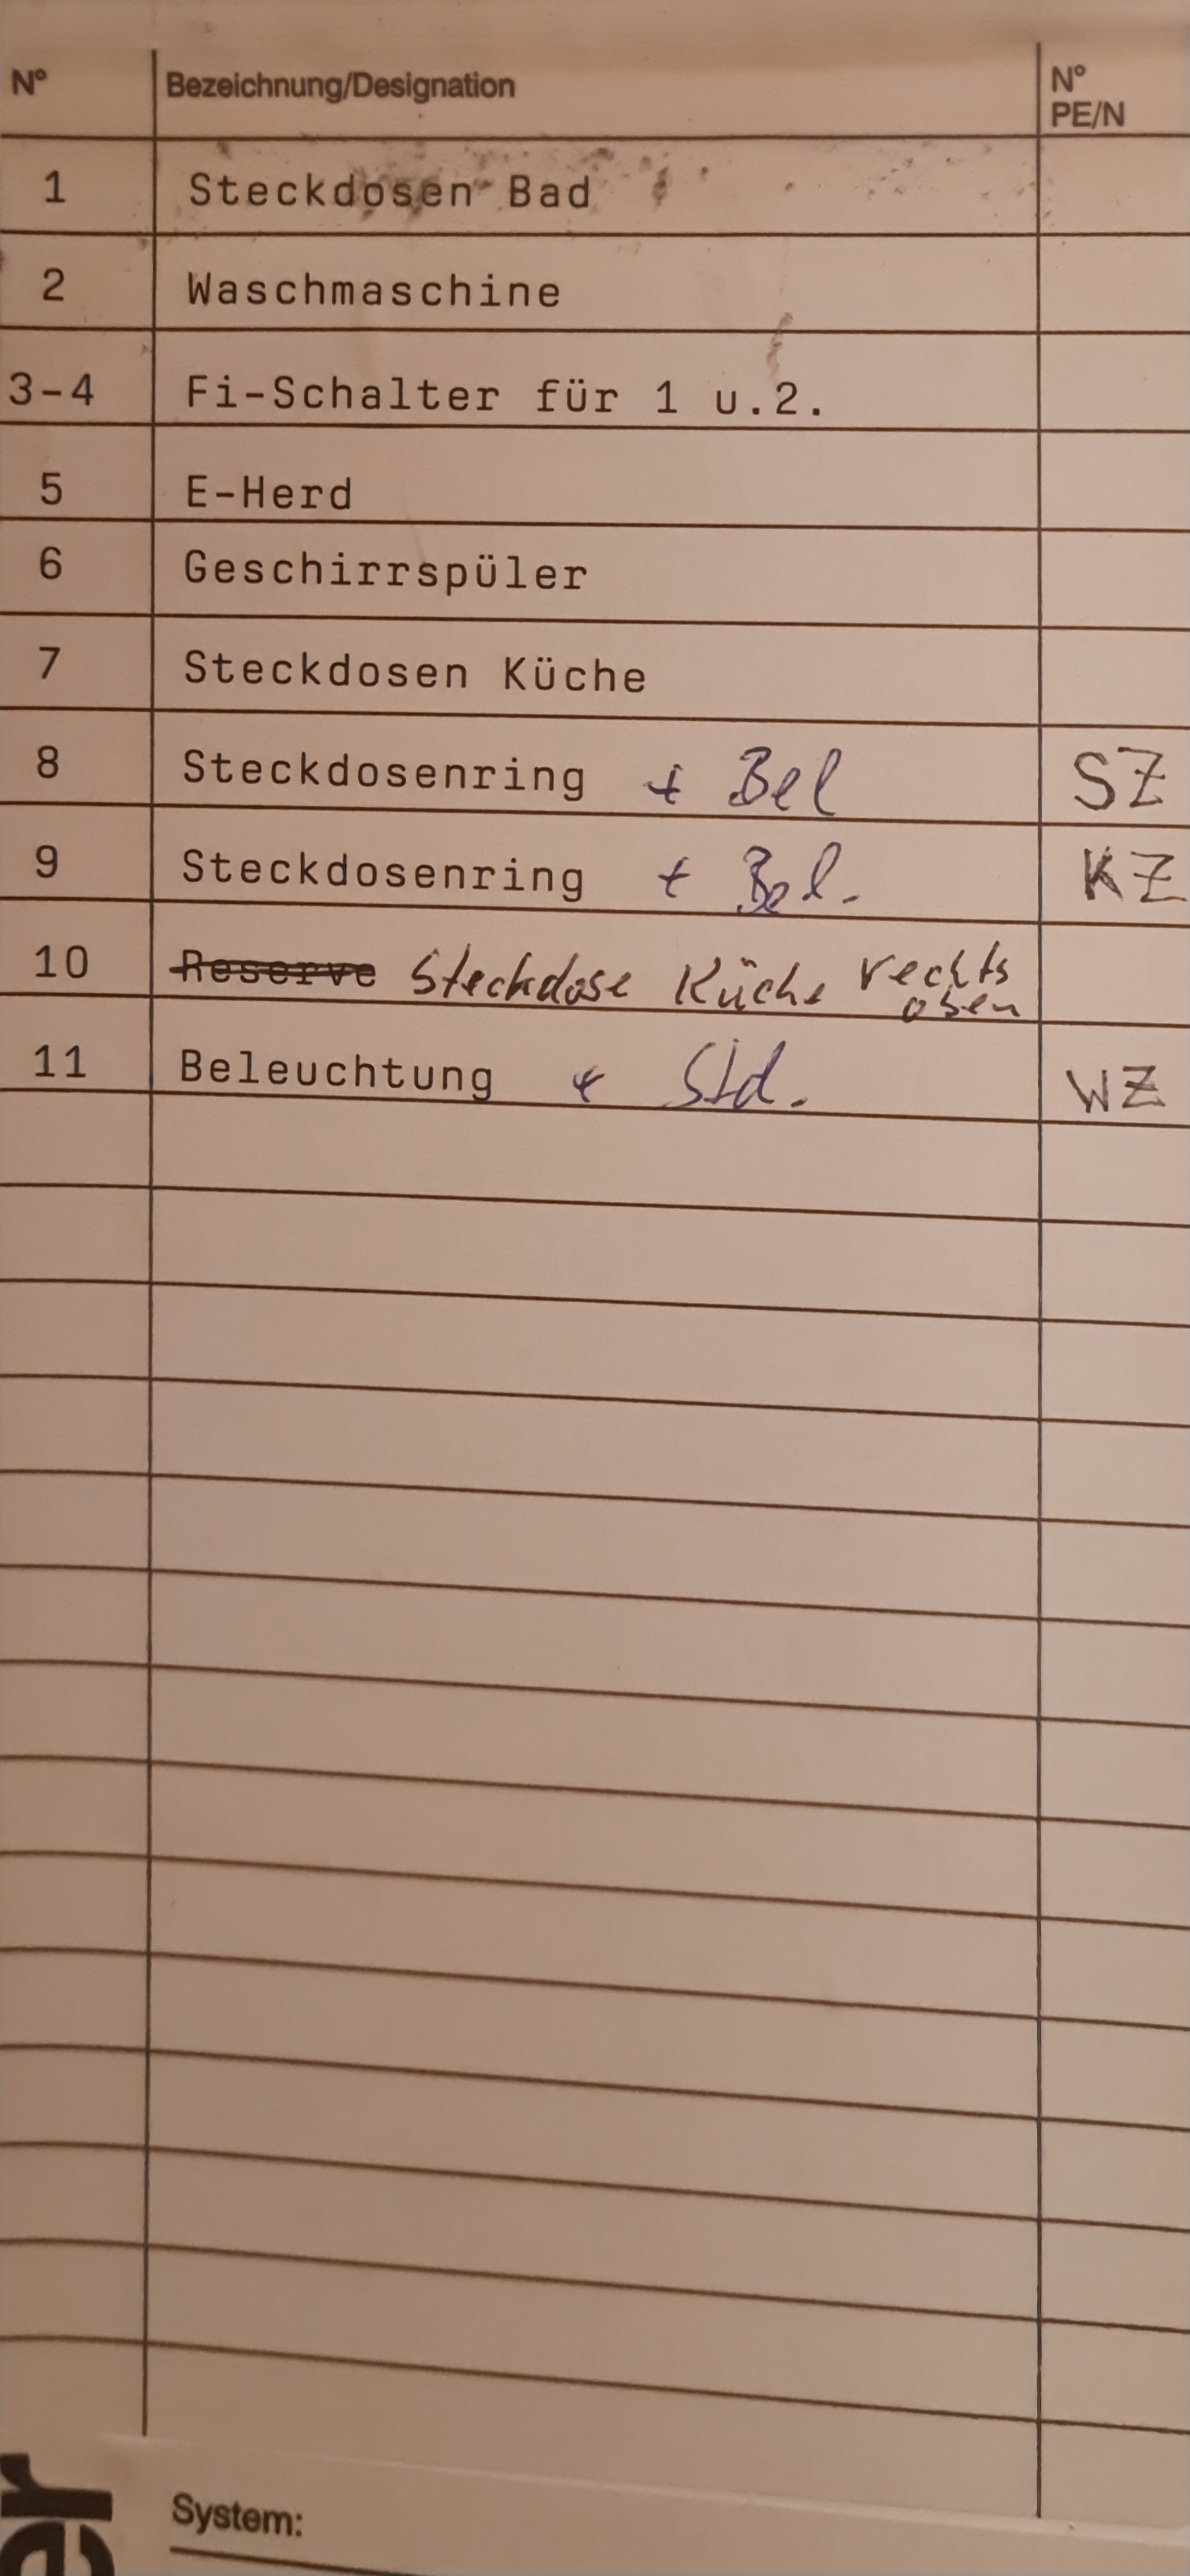 N° Bezeichnung/Designation N° PE/N
1 Steckdosen Bad
2 Waschmaschine
3-4 Fi-Schalter für 1 u.2.
5 E-Herd
6 Geschirrspüler
7 Steckdosen Küche
8 Steckdosenring + Bel SZ
9 Steckdosenring + Bel. KZ
10 Reserve Steckdose Küche rechts oben
11 Beleuchtung + Std. WZ
System:
er